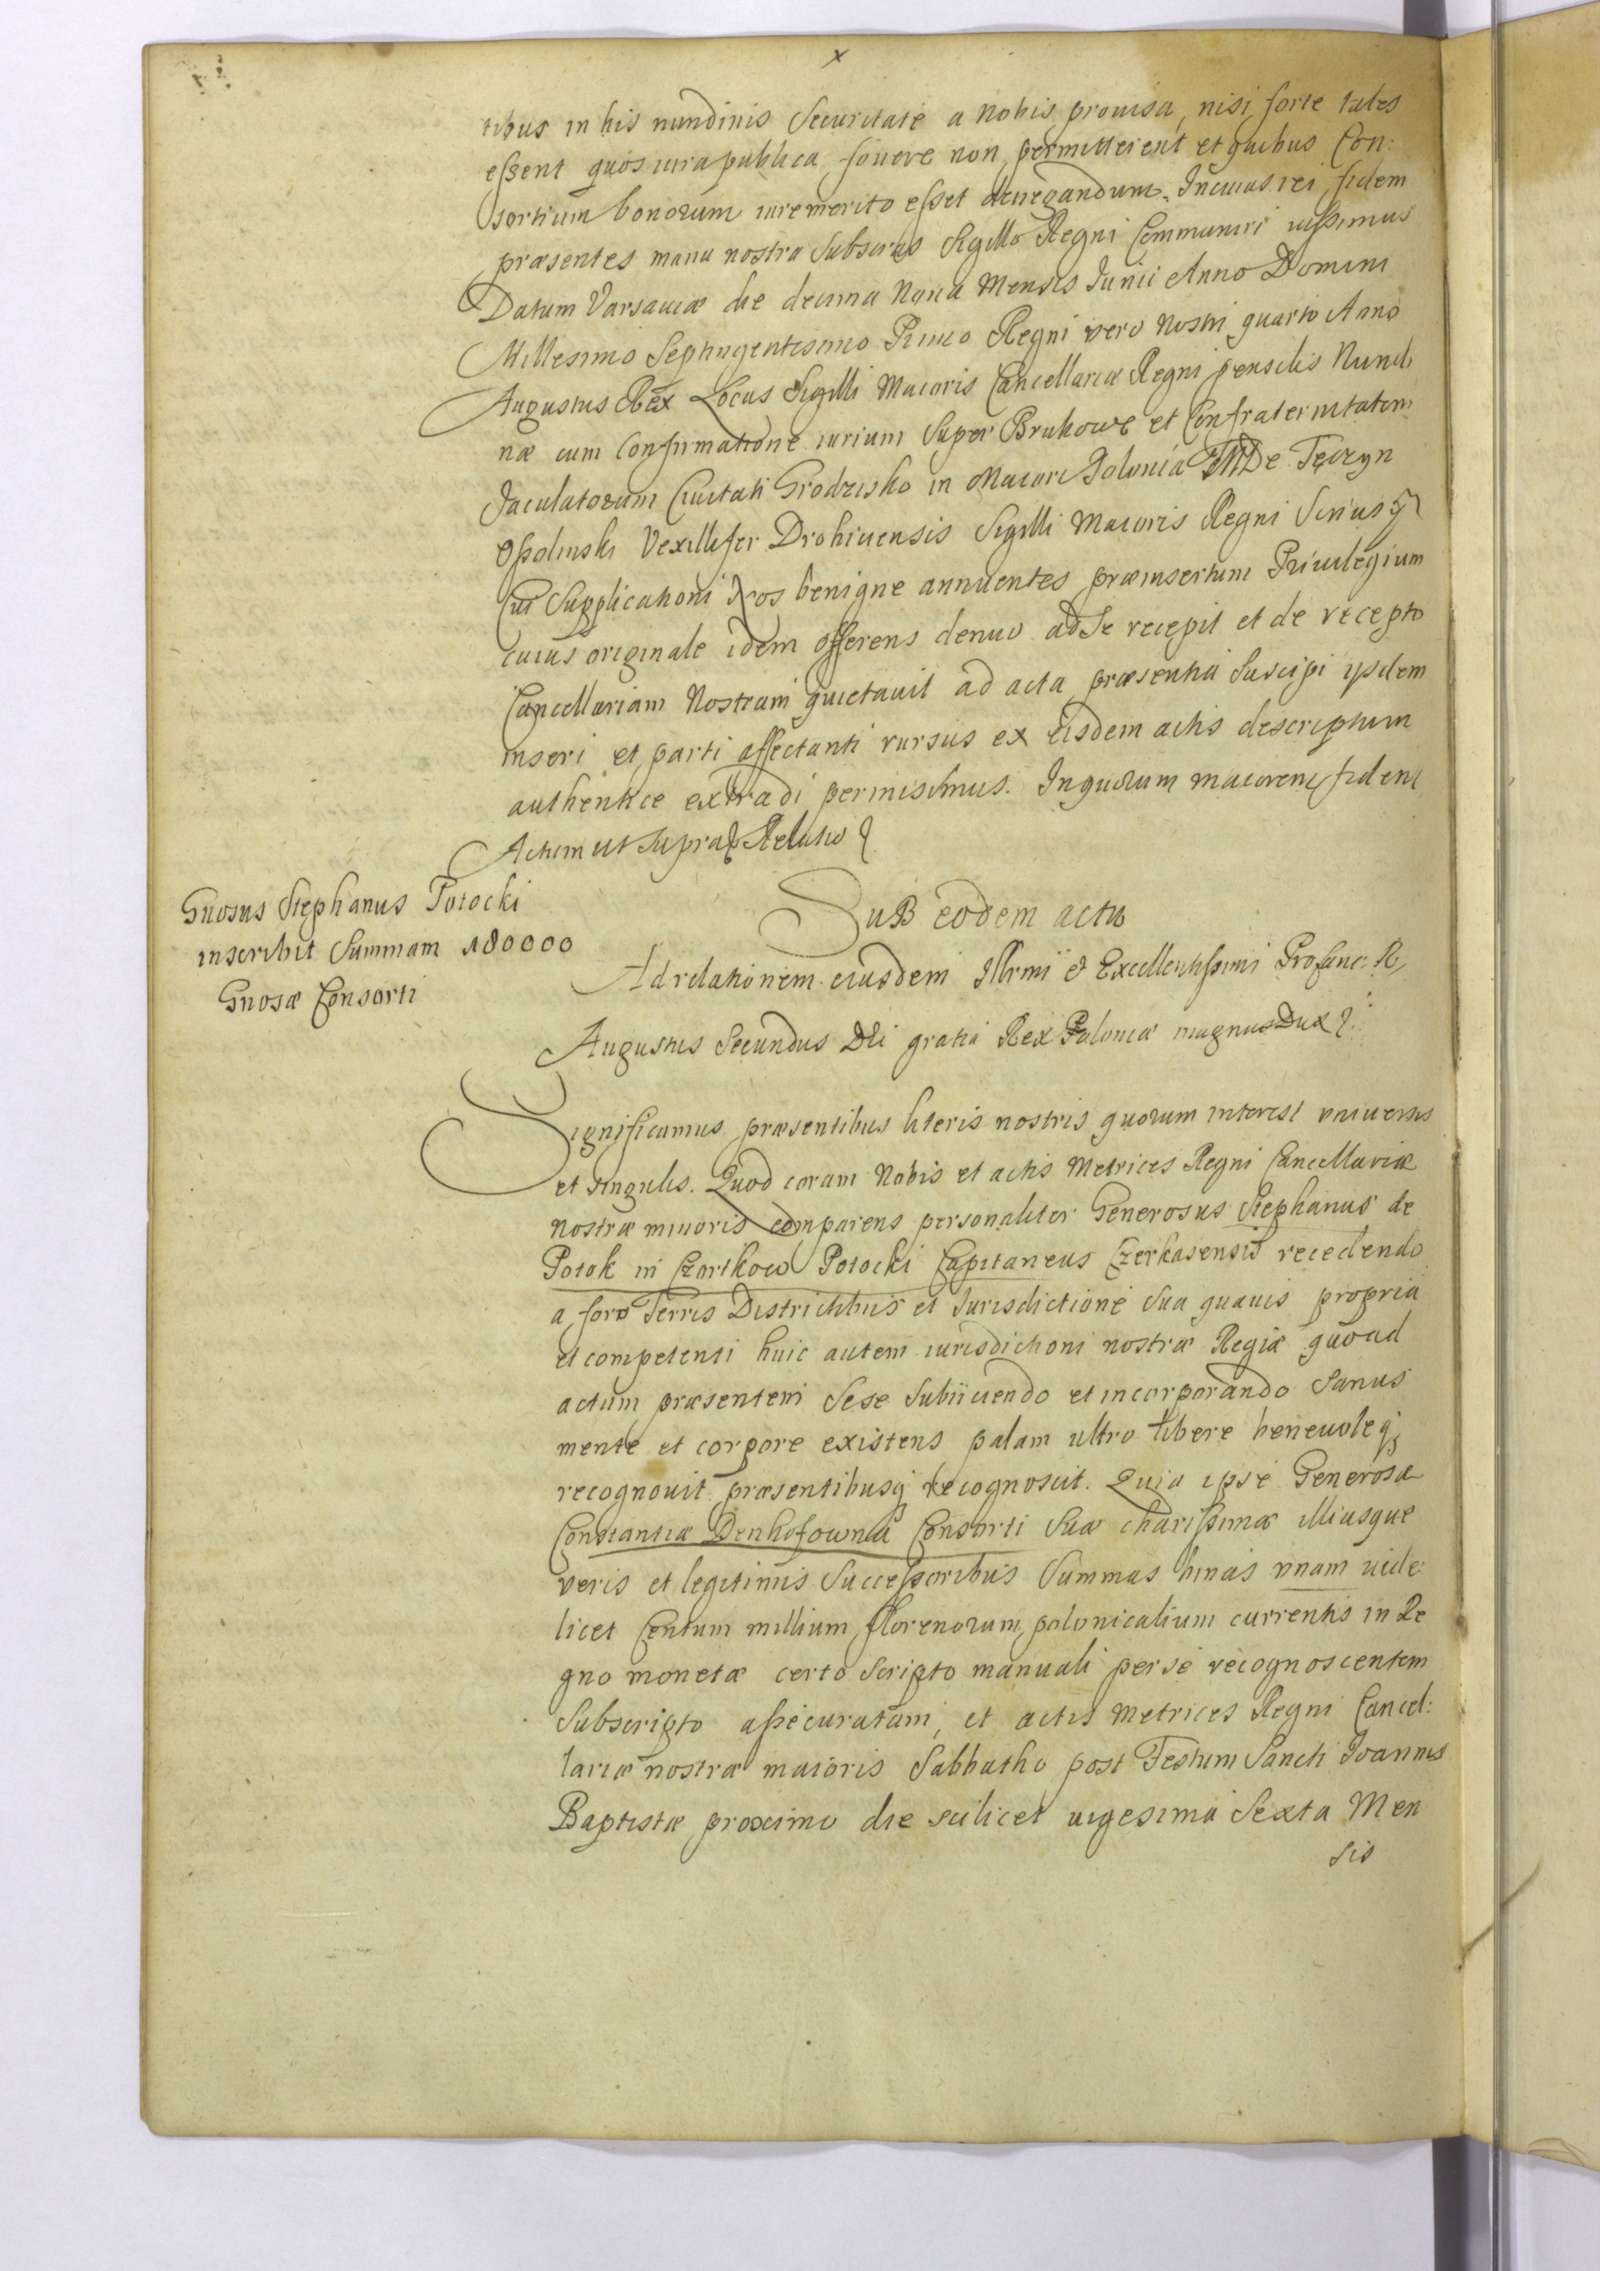 x
tibus in his nundinis Securitate a Nobis prouisa, nisi forte tales
essent quos iura publica fouere non permitterent et quibus Con:
sortium bonorum iure merito esset denegandum. In cuius rei fidem
præsentes manu nostra Subscrias Sigillo Regni Communiri iussimus
Datum Varsauiæ die decima Nona Mensis Junii Anno Domini
Millesimo Septingentesimo Primo Regni vero Nostri quarto Anno
Augustus Rex Locus Sigilli Maioris Cancellariæ Regni pensilis Nundi
næ cum Confirmatione iurium Super Brukowe et Confraternitatem
Jaculatorum Ciuitati Grodzisko in Maiori Polonia De Tęczyn
Ossolinski Vexillifer Drohiuensis Sigilli Maioris Regni
Cui Supplicationi Nos benigne annuentes præinsertum Priuilegium
cuius originale idem offerens denuo ad Se recepit et de recepto
Cancellariam Nostram quietauit ad acta præsentia Suscipi ysdem
inseri et parti affectanti rursus ex eisdem actis descriptum
authentice extradi permisimus. In quorum maiorem fidem
Actum ut Supra Relatio
Gnosus Stephanus Potocki
inscribit Summam 180000
Gnosæ Consorti
SuB eodem actu
Ad relationem eiusdem Illrmi et Excellentissimi Procanc: R,
Augustus Secundus Dei gratia Rex Poloniæ magnus Dux
Significamus præsentibus literis nostris quorum interest vniuersis
et singulis. Quod coram Nobis et actis Metrices Regni Cancellariæ
nostræ minoris comparens personaliter Generosus Stephanus de
Potok in Czortkow Potocki Capitaneus Czerkasensis recedendo
a foro Terris Districtibus et Jurisdictione Sua quauis propria
et competenti huic autem iurisdictioni nostræ Regiæ quoad
actum præsentem Sese Subiiciendo et incorporando Sanus
mente et corpore existens palam ultro libere beneuoleq;
recognouit præsentibusq recognoscit. Quia ipse Generosæ
Constantiæ Denhofowna Consorti Suæ charissimæ illiusque
veris et legitimis Successoribus Summas binas vnam uide:
licet Centum millium florenorum polonicalium currentis in Re
gno monetæ certo Scripto manuali per se recognoscentem
Subscripto assecuratam, et actis Metrices Regni Cancel:
lariæ nostræ maioris Sabbatho post Festum Sancti Joannis
Baptistæ proximo die scilicet uigesima Sexta Men
sis